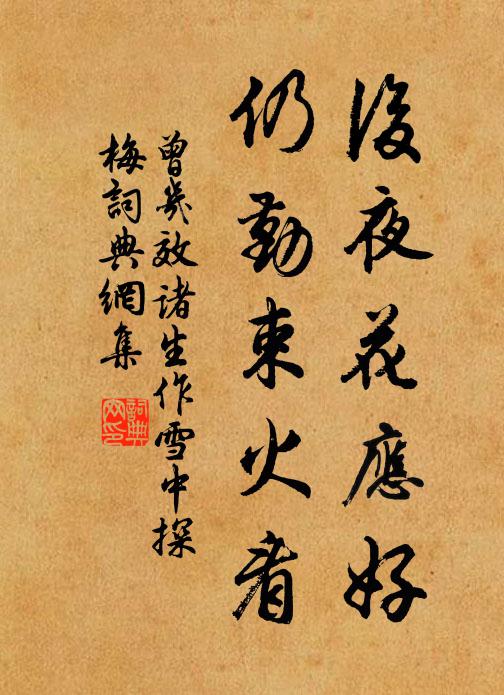 後夜花應好
仍勤束火看
曾幾效諸生作雪中探
梅詞典網集
詞典網印